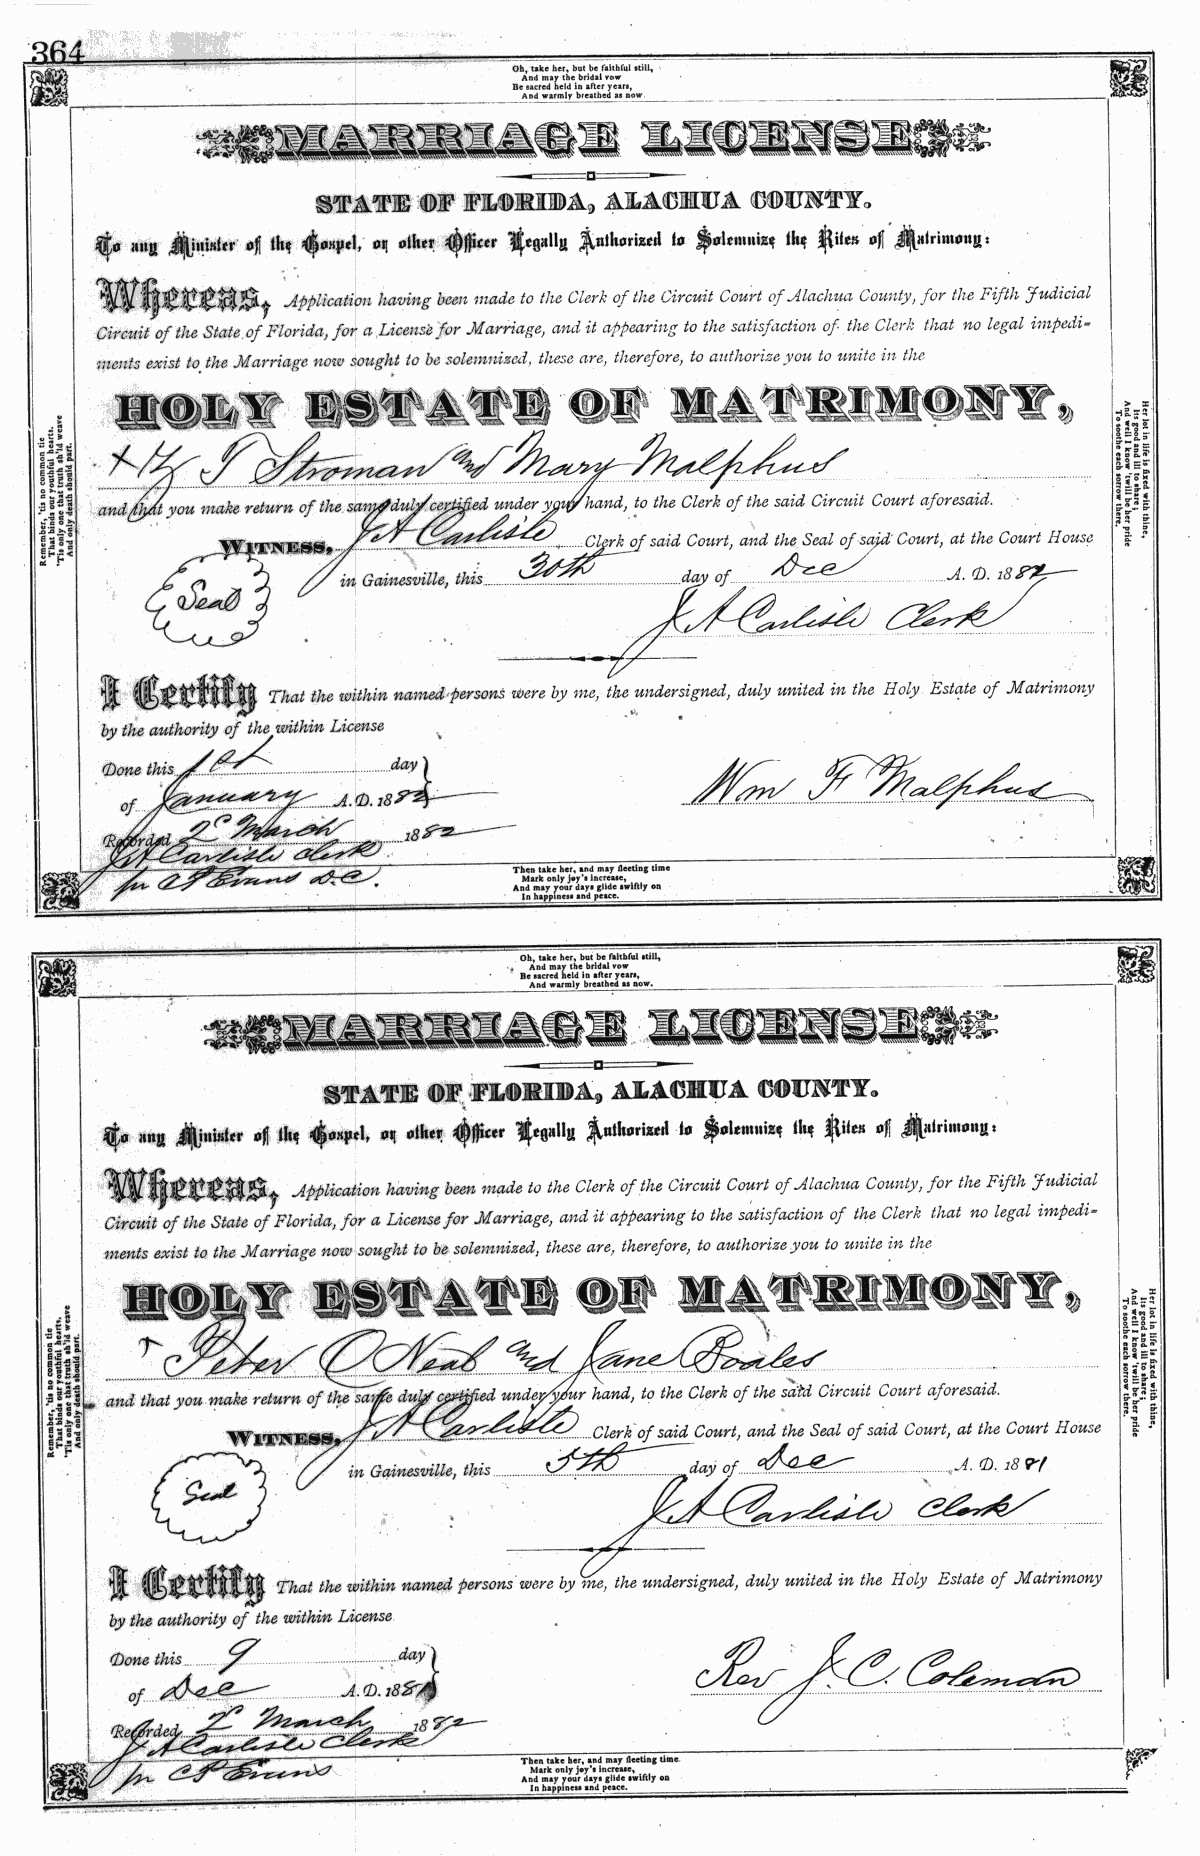 364
Oh, take her, but be faithful still,
And may the bridal vow
Be sacred held in after years,
And warmly breathed as now.
MARRIAGE LICENSE
STATE OF FLORIDA, ALACHUA COUNTY.
To any Minister of the Gospel, or other Officer Legally Authorized to Solemnize the Rites of Matrimony:
Whereas, Application having been made to the Clerk of the Circuit Court of Alachua County, for the Fifth Judicial
Circuit of the State of Florida, for a License for Marriage, and it appearing to the satisfaction of the Clerk that no legal impedi-
ments exist to the Marriage now sought to be solemnized, these are, therefore, to authorize you to unite in the
HOLY ESTATE OF MATRIMONY,
T Stroman and Mary Malphus
and that you make return of the same duly certified under your hand, to the Clerk of the said Circuit Court aforesaid.
WITNESS, J A Carlisle Clerk of said Court, and the Seal of said Court, at the Court House
in Gainesville, this 30th day of Dec A. D. 1882
Seal
J A Carlisle Clerk
I Certify That the within named persons were by me, the undersigned, duly united in the Holy Estate of Matrimony
by the authority of the within License
Done this 1st day
of January A.D. 1882
Wm F Malphus
Recorded 2d March 1882
J A Carlisle clerk
pr C P Evans D.C.
Remember, 'tis no common tie
That binds our youthful hearts,
'Tis only one that truth sh'ld weave
And only death should part.
Her lot in life is fixed with thine,
Its good and ill to share;
And well I know 'twill be her pride
To soothe each sorrow there.
Then take her, and may fleeting time
Mark only joy's increase,
And may your days glide swiftly on
In happiness and peace.
Oh, take her, but be faithful still,
And may the bridal vow
Be sacred held in after years,
And warmly breathed as now.
MARRIAGE LICENSE
STATE OF FLORIDA, ALACHUA COUNTY.
To any Minister of the Gospel, or other Officer Legally Authorized to Solemnize the Rites of Matrimony:
Whereas, Application having been made to the Clerk of the Circuit Court of Alachua County, for the Fifth Judicial
Circuit of the State of Florida, for a License for Marriage, and it appearing to the satisfaction of the Clerk that no legal impedi-
ments exist to the Marriage now sought to be solemnized, these are, therefore, to authorize you to unite in the
HOLY ESTATE OF MATRIMONY,
Peter O Neal and Jane Boales
and that you make return of the same duly certified under your hand, to the Clerk of the said Circuit Court aforesaid.
WITNESS, J A Carlisle Clerk of said Court, and the Seal of said Court, at the Court House
in Gainesville, this 5th day of Dec A. D. 1881
Seal
J A Carlisle clerk
I Certify That the within named persons were by me, the undersigned, duly united in the Holy Estate of Matrimony
by the authority of the within License
Done this 9 day
of Dec A.D. 1881
Rev J. C. Coleman
Recorded 2d March 1882
J A Carlisle Clerk
pr C P Evans
Remember, 'tis no common tie
That binds our youthful hearts,
'Tis only one that truth sh'ld weave
And only death should part.
Her lot in life is fixed with thine,
Its good and ill to share;
And well I know 'twill be her pride
To soothe each sorrow there.
Then take her, and may fleeting time
Mark only joy's increase,
And may your days glide swiftly on
In happiness and peace.